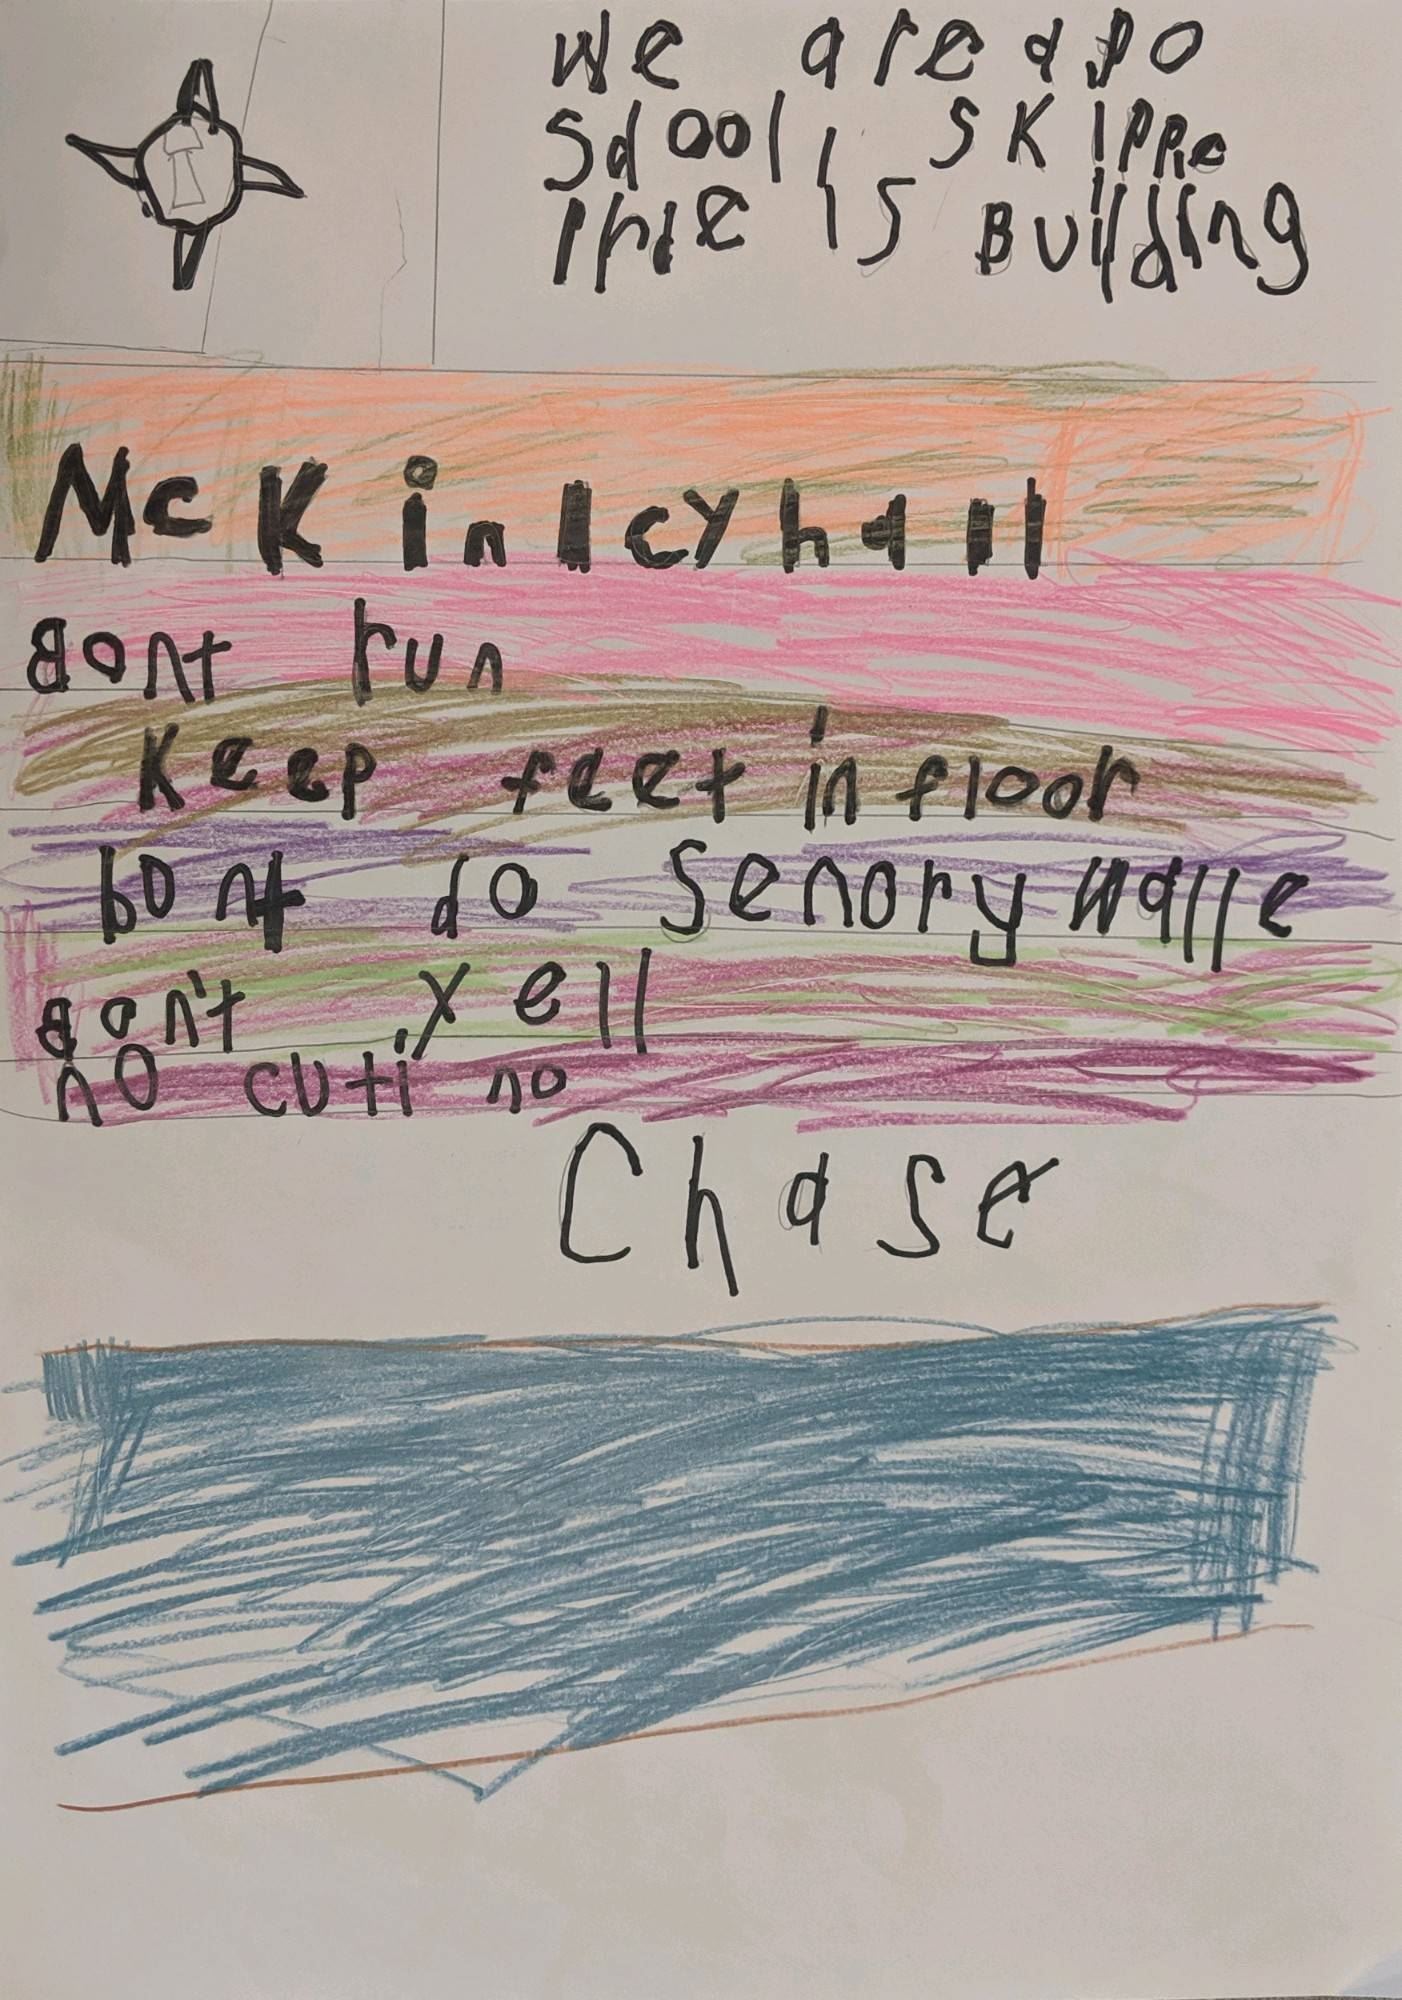 We are a po
Sdool is SKIPPie
Thie is Building
McKinlcy hall
dont run
Keep feet in floor
bont do Senory Walle
don't yell
no cuti no
Chase